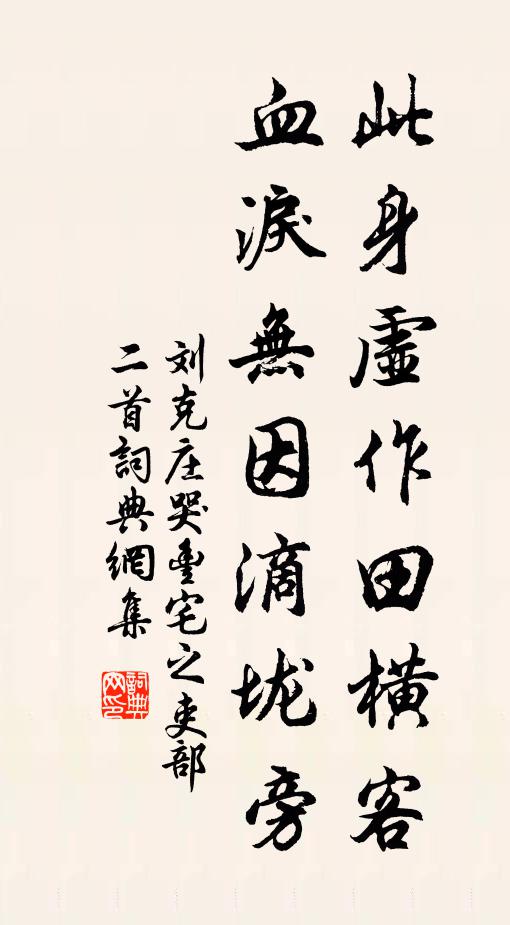 此身虛作田橫客
血淚無因滴垅旁
刘克庄哭豊宅之吏部
二首詞典網集
詞典网印